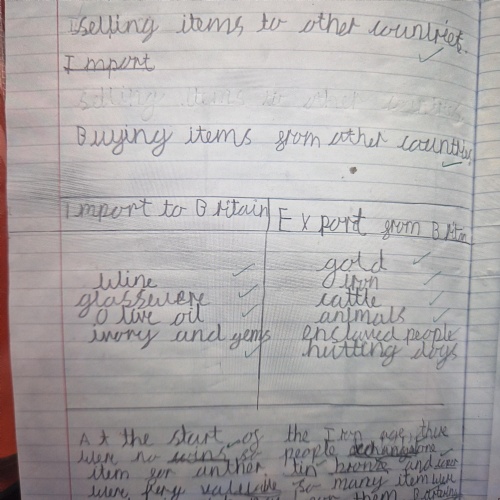 selling items to other countries.
Import
selling items to other
Buying items from other countries.
Import to Britain Export from Britain
gold
wline iron
glasswere cattle
olive oil animals
ivory and gems enslaved people
hutting dogs
At the start of the Iron age, there
were no coins so people
item for anther tin bronze and
were very valuable so many item were
them